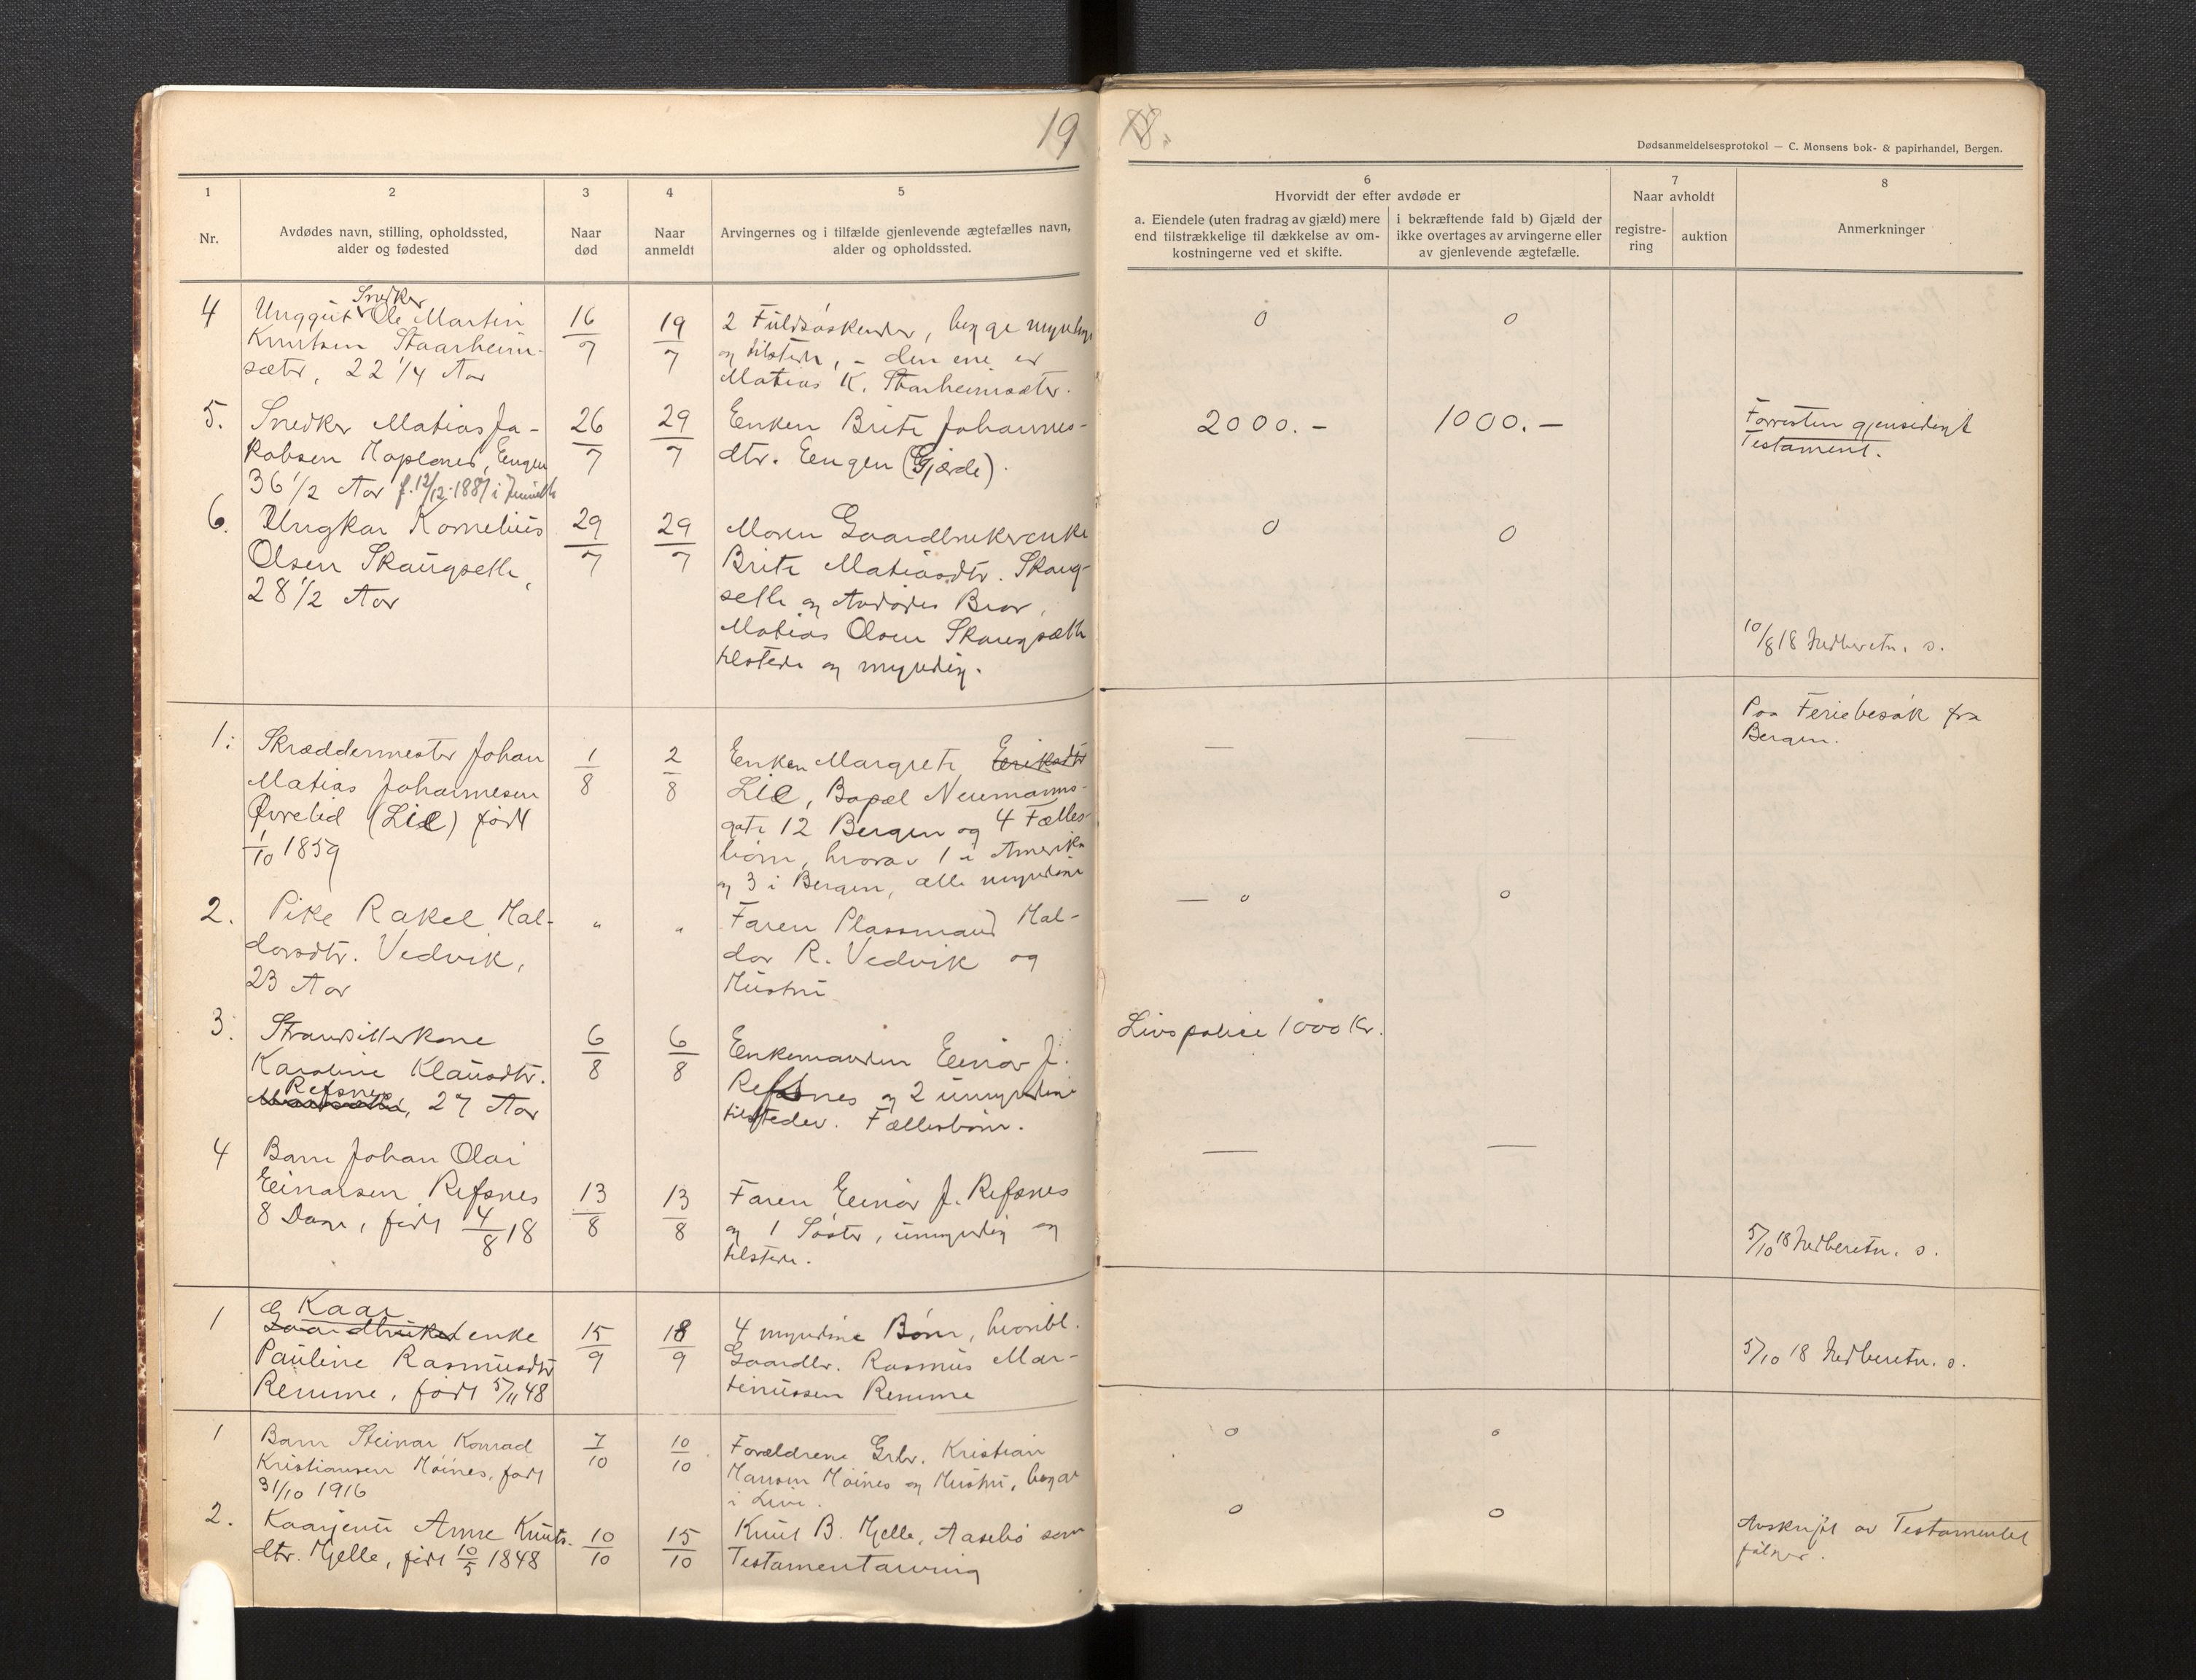 19
18.
Dødsanmeldelsesprotokol — C. Monsens bok- & papirhandel, Bergen.
1
Nr.
2
Avdødes navn, stilling, opholdssted,
alder og fødested
3
Naar
død
4
Naar
anmeldt
5
Arvingernes og i tilfælde gjenlevende ægtefælles navn,
alder og opholdssted.
6
Hvorvidt der efter avdøde er
a. Eiendele (uten fradrag av gjæld) mere
end tilstrækkelige til dækkelse av om-
kostningerne ved et skifte.
i bekræftende fald b) Gjæld der
ikke overtages av arvingerne eller
av gjenlevende ægtefælle.
7
Naar avholdt
registre-
ring
auktion
8
Anmerkninger
4
Snedker
Unggut Ole Martin
Knutsen Staarheim-
sætr, 22 1/4 Aar
16/7
19/7
2 Fuldsøskender, begge myndige
og tilstede, - den ene er
Matias K. Starheimsæter.
0
0
5.
Snedker Matias Ja-
kobsen Hoplones, Eengen
36 1/2 Aar f. 12/12-1881 i
26/7
29/7
Enken Brite Johannes-
dtr. Eengen (Gjærde).
2000.-
1000.-
Forresten gjensidigt
Testament.
6.
Ungkar Kornelius
Olsen Skaugseth,
28 1/2 Aar
29/7
29/7
Moren Gaardbrukerenke
Brite Matiasdtr. Skaug-
seth og Avdødes Bror,
Matias Olsen Skaugsæth
tilstede og myndig.
0
0
10/8 18 Indberetn. s.
1.
Skræddermester Johan
Matias Johannesen
Øvrelid (Lie) født
1/10 1859
1/8
2/8
Enken Margrete Eriksdtr
Lie, Bopæl Neumanns-
gate 12 Bergen og 4 Fælles-
børn, hvorav 1 i Amerika
og 3 i Bergen, alle myndige
—
—
Paa Feriebesøk fra
Bergen.
2.
Pike Rakel Hal-
dorsdtr. Vedvik,
23 Aar
"
"
Faren Plassmand Hal-
dor R. Vedvik og
Hustru
— 0
0
3.
Strandsitterkone
Karoline Klausdtr.
Refsnes
, 27 Aar
6/8
6/8
Enkemanden Einar J.
Refsnes og 2 umyndige
tilsteder. Fællesbørn.
Livspolice 1000 Kr.
4
Barn Johan Olai
Einarsen Refsnes
8 Dage, født 4/8 18
13/8
13/8
Faren Einar J. Refsnes
og 1 Søster, umyndig og
tilstede.
—
—
5/10 18 Indberetn. s.
1
Kaar
Gaardbrukerenke
Pauline Rasmusdtr
Remme, født 5/11 48
15/9
18/9
4 myndige Børn, hvoribl.
Gaardbr. Rasmus Mar-
tinussen Remme
5/10 18 Indberetn. s.
1
Barn Steinar Konrad
Kristiansen Høines, født
31/10 1916
7/10
10/10
Forældrene Grbr. Kristian
Hansen Høines og Hustru, begge
i Live.
0
0
2.
Kaarjente Anne Knuts-
dtr. Hjelle, født 10/5 1848
10/10
15/10
Knut B. Hjelle, Aasebø som
Testamentarving
0
0
Avskrift av Testamentet
følger.